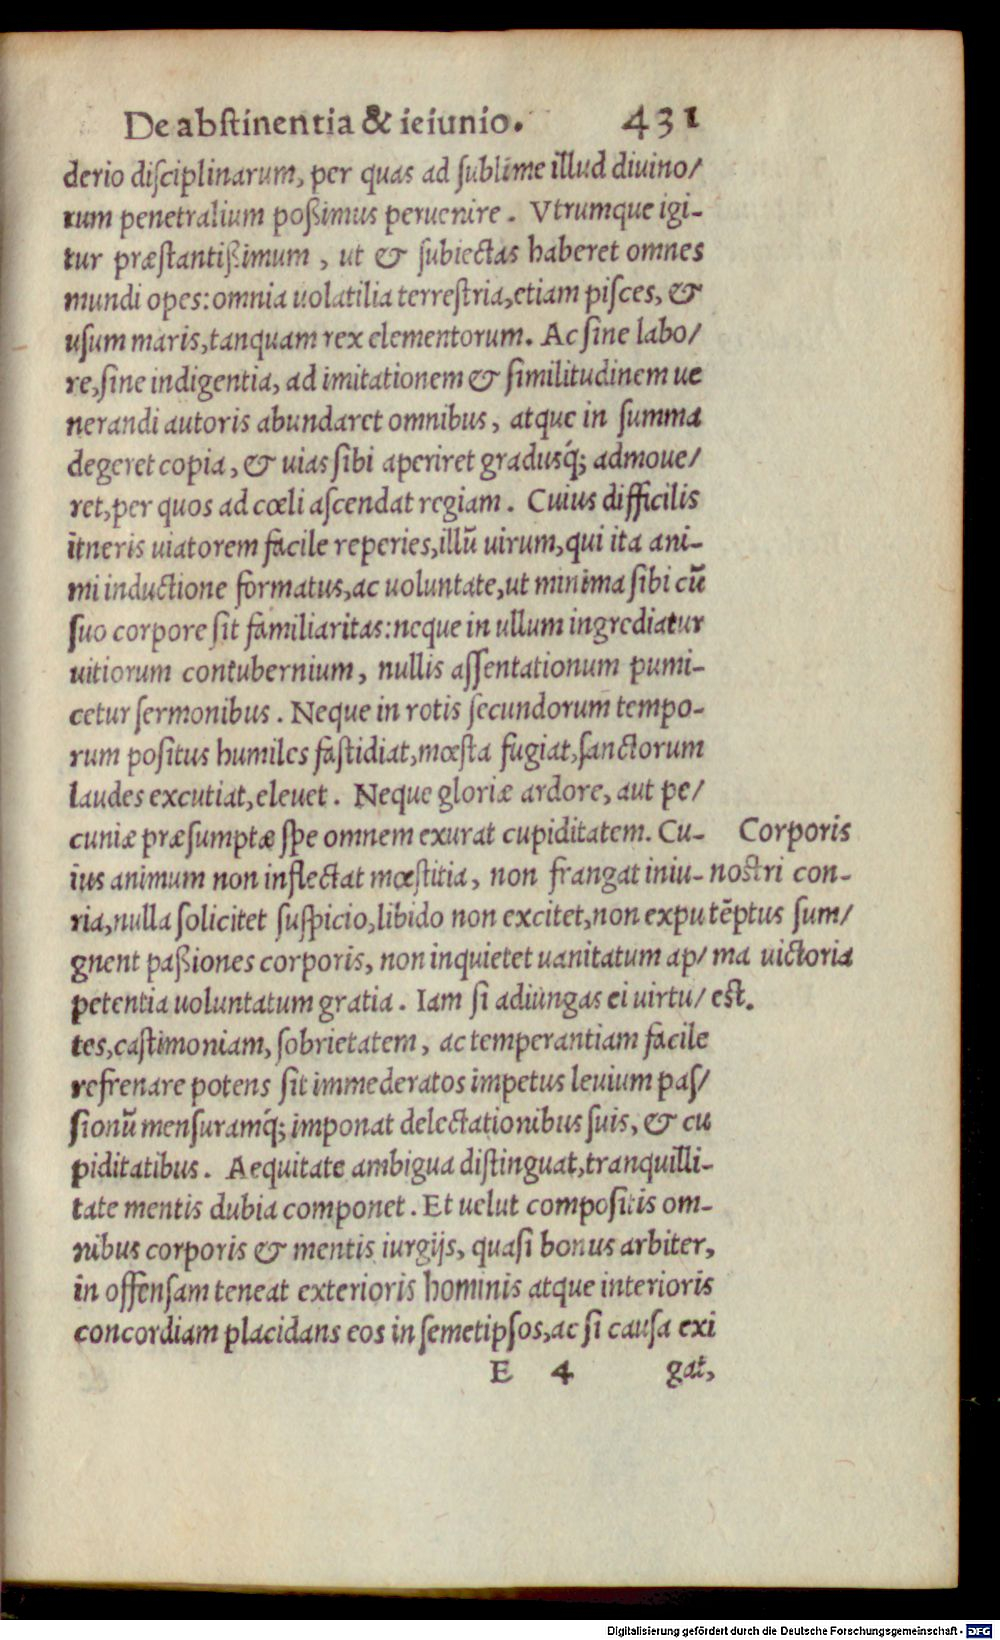 De abstinentia & ieiunio. 431
derio disciplinarum, per quas ad sublime illud diuino/
rum penetralium poßimus peruenire. Vtrumque igi-
tur præstantißimum, ut & subiectas haberet omnes
mundi opes: omnia uolatilia terrestria, etiam pisces, &
usum maris, tanquam rex elementorum. Ac sine labo/
re, sine indigentia, ad imitationem & similitudinem ue
nerandi autoris abundaret omnibus, atque in summa
degeret copia, & uias sibi aperiret gradusq́; admoue/
ret, per quos ad cœli ascendat regiam. Cuius difficilis
itneris uiatorem facile reperies, illũ uirum, qui ita ani-
mi inductione formatus, ac uoluntate, ut minima sibi cũ
suo corpore sit familiaritas: neque in ullum ingrediatur
uitiorum contubernium, nullis assentationum pumi-
cetur sermonibus. Neque in rotis secundorum tempo-
rum positus humiles fastidiat, mœsta fugiat, sanctorum
laudes excutiat, eleuet. Neque gloriæ ardore, aut pe/
cuniæ præsumptæ spe omnem exurat cupiditatem. Cu-
ius animum non inflectat mœstitia, non frangat iniu-
ria, nulla solicitet suspicio, libido non excitet, non expu
gnent paßiones corporis, non inquietet uanitatum ap/
petentia uoluntatum gratia. Iam si adiungas ei uirtu/
tes, castimoniam, sobrietatem, ac temperantiam facile
refrenare potens sit immederatos impetus leuium pas/
sionũ mensuramq́; imponat delectationibus suis, & cu
piditatibus. Aequitate ambigua distinguat, tranquilli-
tate mentis dubia componet. Et uelut compositis om-
nibus corporis & mentis iurgijs, quasi bonus arbiter,
in offensam teneat exterioris hominis atque interioris
concordiam placidans eos in semetipsos, ac si causa exi
E 4 gat,
Corporis
nostri con-
tẽptus sum/
ma uictoria
est.
Digitalisierung gefördert durch die Deutsche Forschungsgemeinschaft - DFG